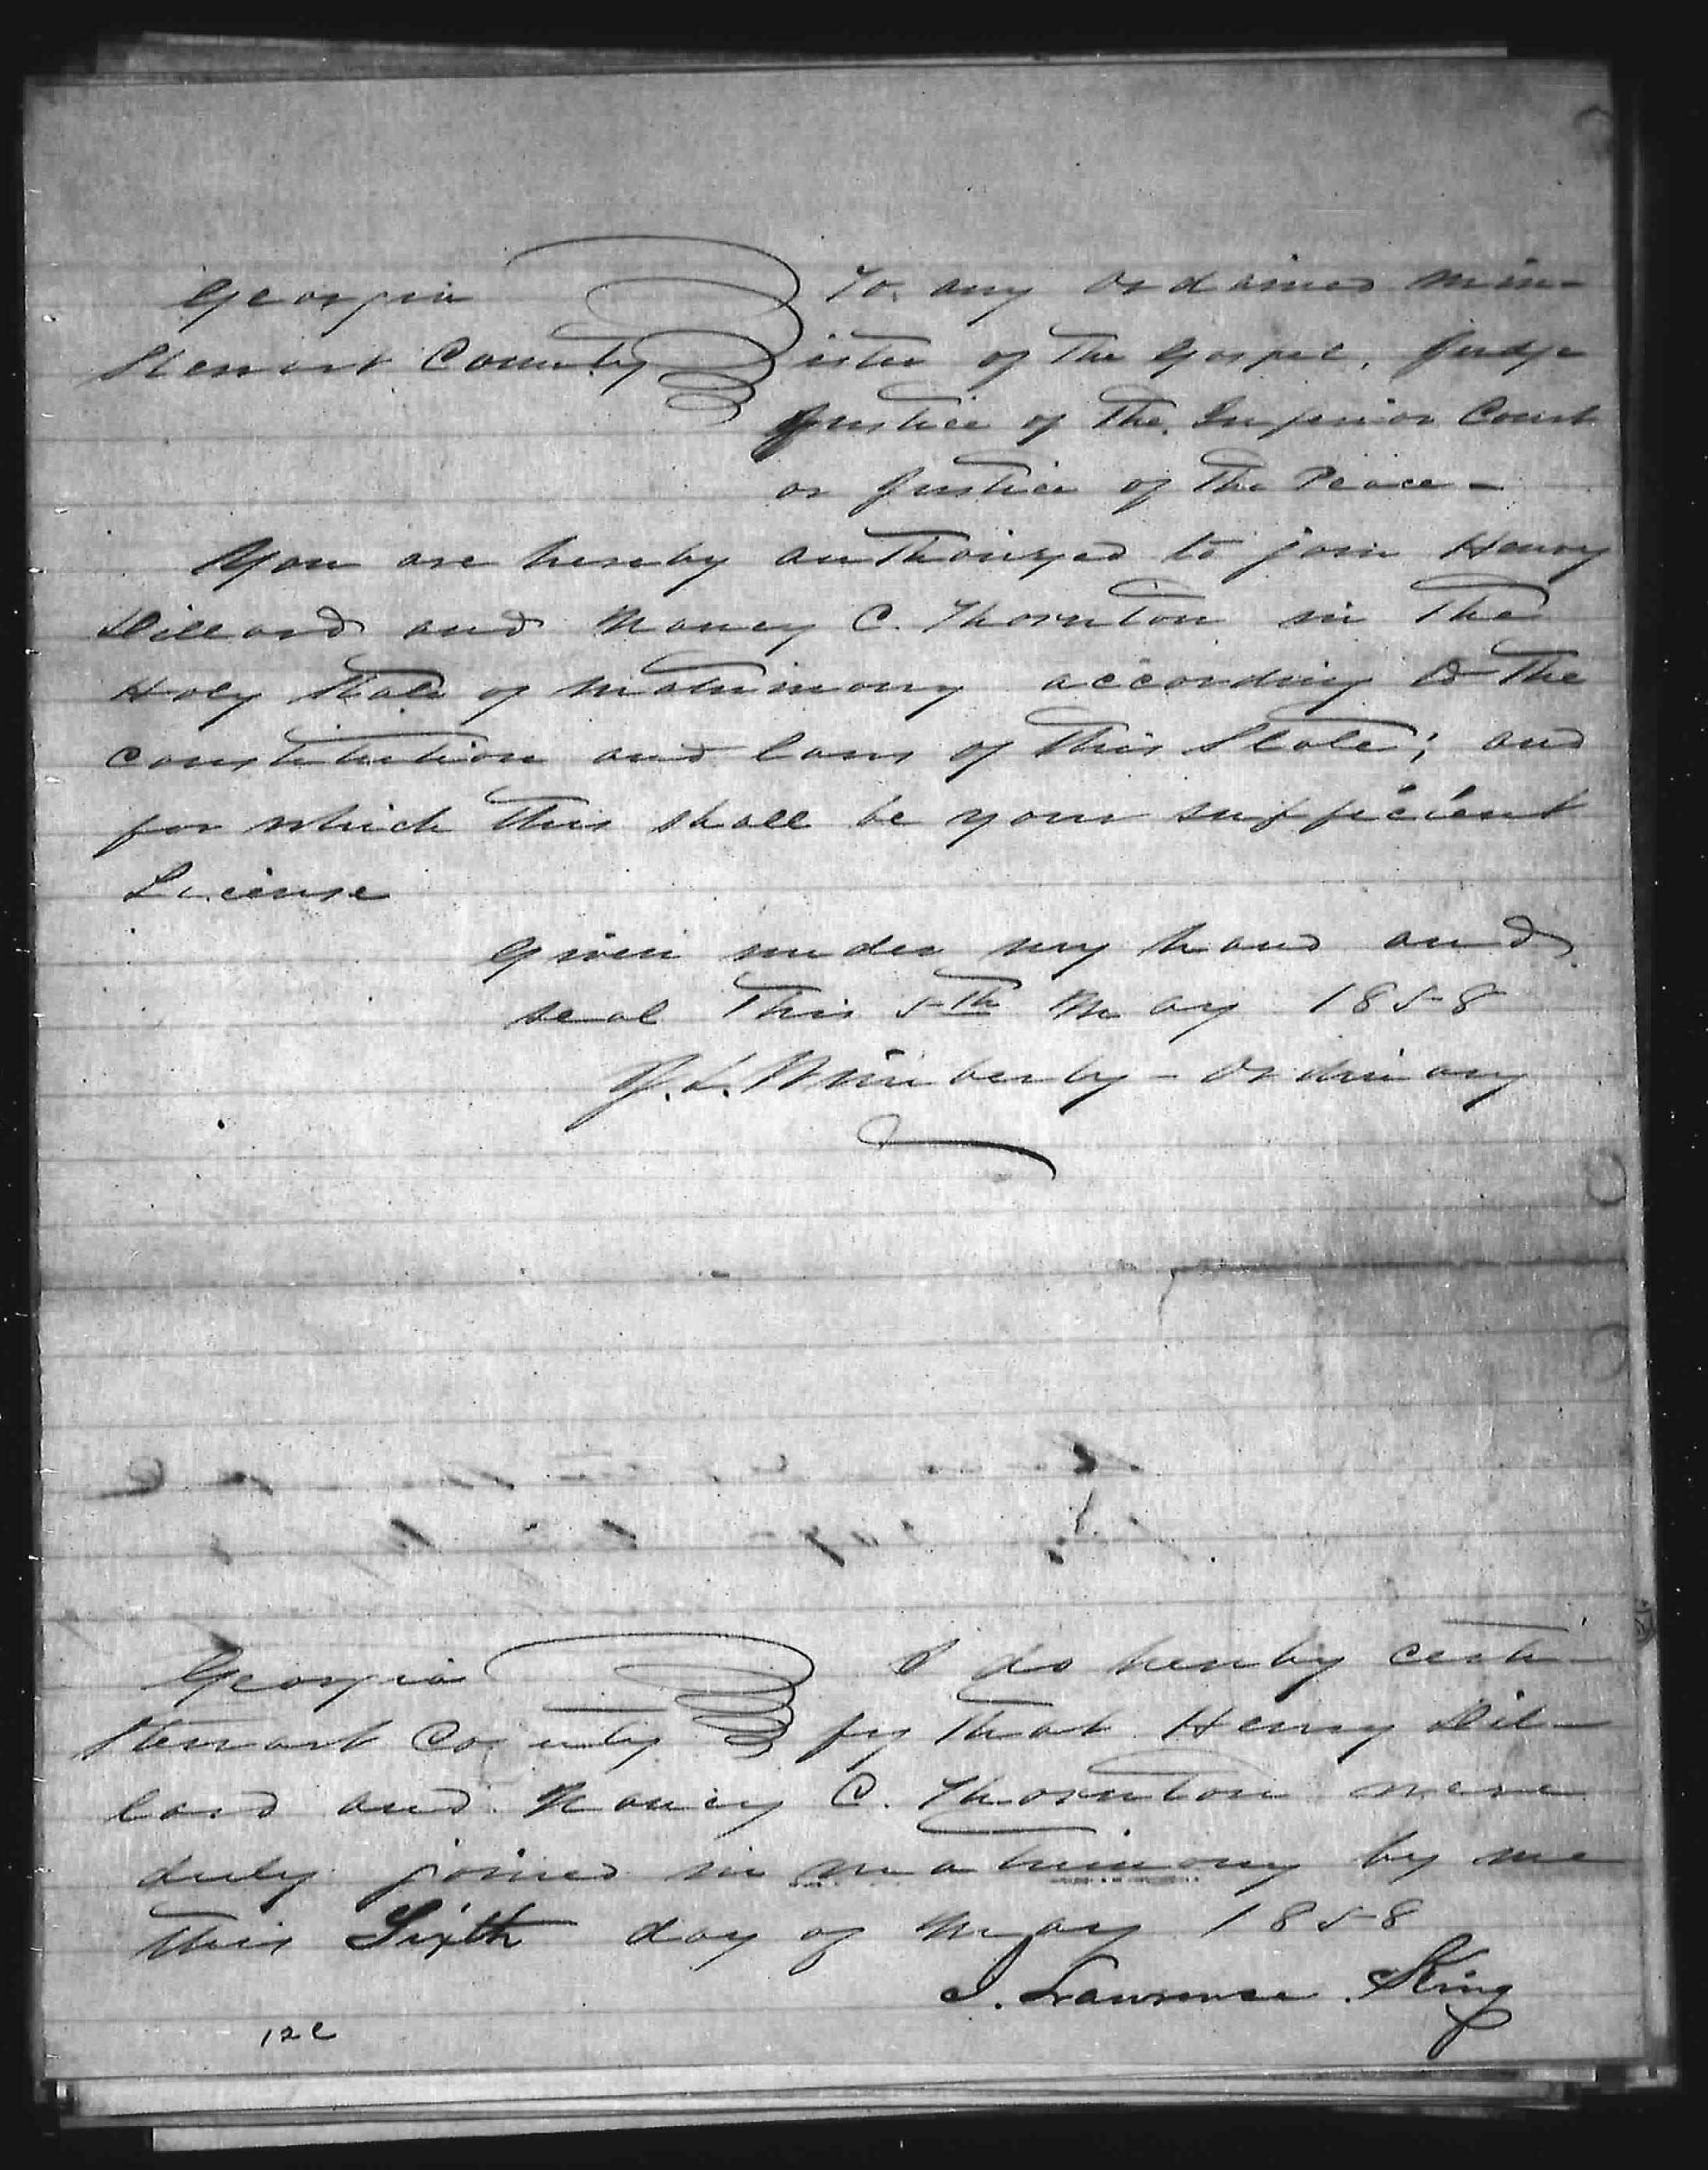 Georgia To any ordained min-
Stewart County ister of the Gospel, Judge
Justice of the Inferior Court
or Justice of the Peace -
You are hereby authorized to join Henry
Dillard and Nancy C. Thornton in the
Holy State of matrimony according to the
constitution and laws of this State; and
for which this shall be your sufficient
License
Given under my hand and
seal this 5th May 1858
J. L. Wimberly - Ordinary
Georgia I do hereby certi-
Stewart County fy that Henry Dil-
lard and Nancy C. Thornton were
duly joined in matrimony by me
this Sixth day of May 1858
J. Lawrence King